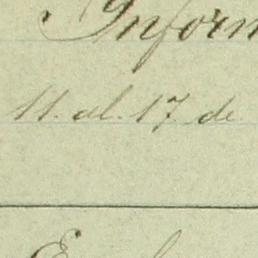 Inform
11. al. 17 de